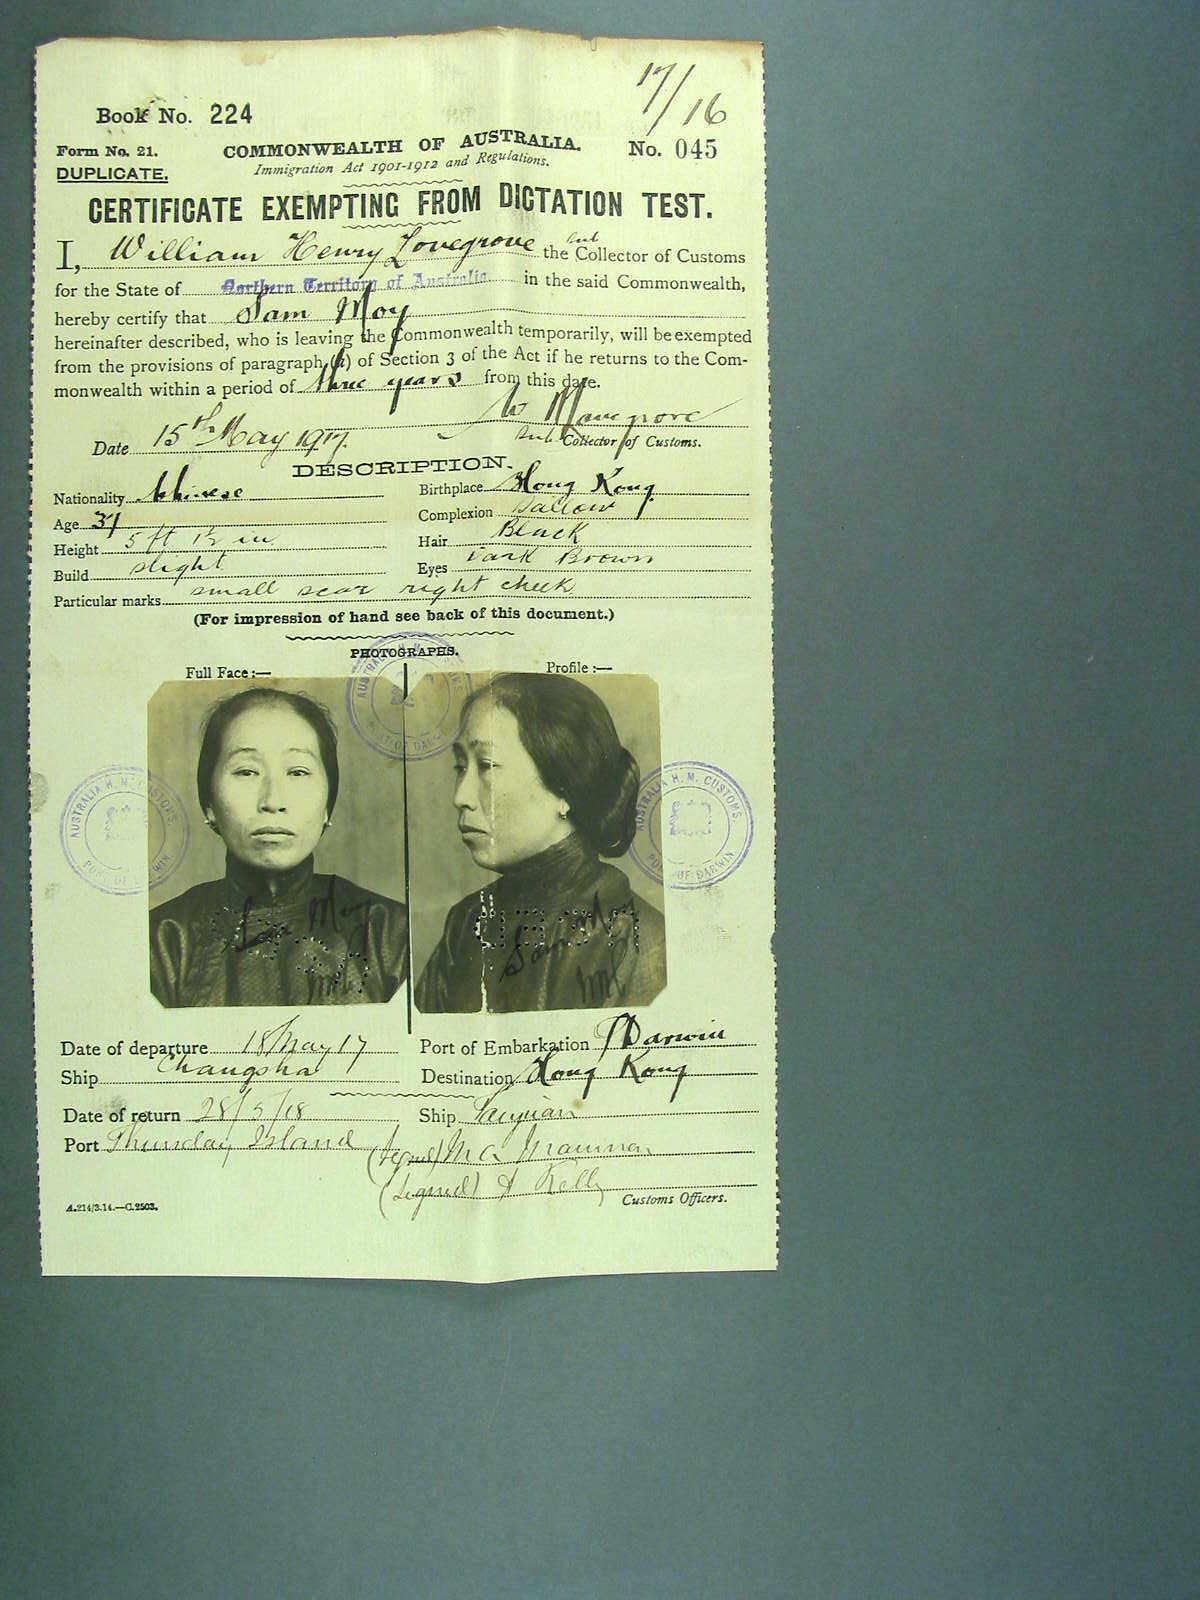 17/16
Book No. 224
Form No. 21.
COMMONWEALTH OF AUSTRALIA.
No. 045
DUPLICATE.
Immigration Act 1901-1912 and Regulations.
CERTIFICATE EXEMPTING FROM DICTATION TEST.
I, William Henry Lovegrove the Sub Collector of Customs
for the State of Northern Territory of Australia in the said Commonwealth,
hereby certify that Sam Moy
hereinafter described, who is leaving the Commonwealth temporarily, will be exempted
from the provisions of paragraph (a) of Section 3 of the Act if he returns to the Com-
monwealth within a period of three years from this date.
W H Lovegrove
Date 15th May 1917. Sub Collector of Customs.
DESCRIPTION.
Nationality Chinese Birthplace Hong Kong
Age 37 Complexion Sallow
Height 5 ft 1½ in Hair Black
Build slight Eyes Dark Brown
Particular marks small scar right cheek
(For impression of hand see back of this document.)
PHOTOGRAPHS.
Full Face :— Profile :—
AUSTRALIA H. M. CUSTOMS. PORT OF DARWIN
AUSTRALIA H. M. CUSTOMS. PORT OF DARWIN
AUSTRALIA H. M. CUSTOMS. PORT OF DARWIN
Sam Moy
Sam Moy
Date of departure 18 May 17 Port of Embarkation P Darwin
Ship Changsha Destination Hong Kong
Date of return 28/5/18 Ship Taiyuan
Port Thursday Island (signed)
(signed) Kelly
Customs Officers.
A.214/3.14.—C.2503.